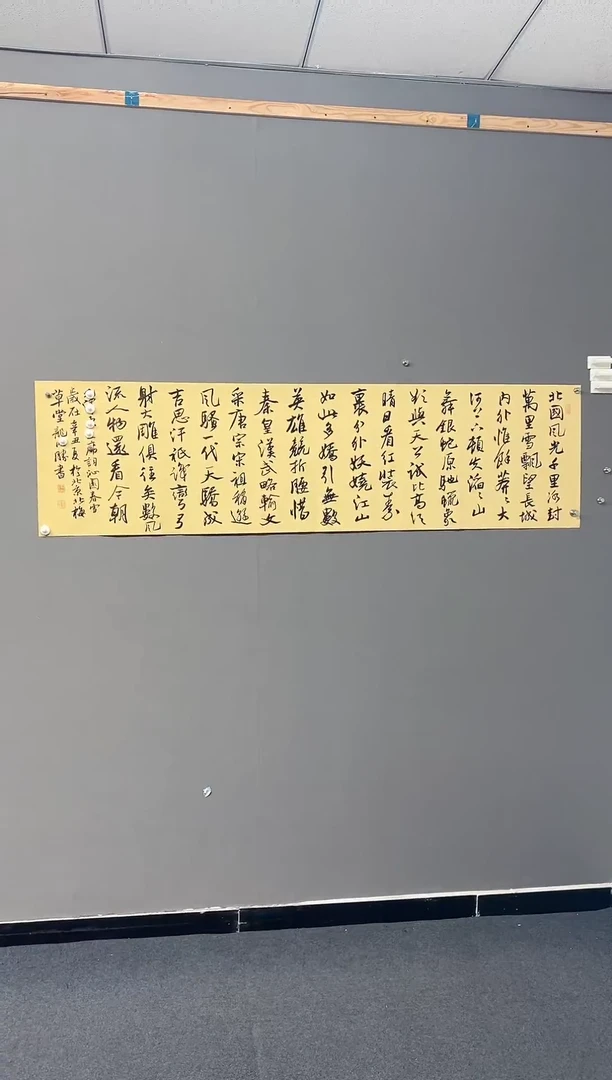 北國風光千里冰封
萬里雪飄望長城
內外惟餘莽〻大
河上下頓失滔〻山
舞銀蛇原馳蠟象
欲與天公試比高須
晴日看紅裝素
裹分外妖嬈江山
如此多嬌引無數
英雄競折腰惜
秦皇漢武略輸文
采唐宗宋祖稍遜
風騷一代天驕成
吉思汗祇識彎弓
射大雕俱往矣數風
流人物還看今朝
詞沁園春雪
歲在辛丑夏於北京北梅
草堂龍勝書